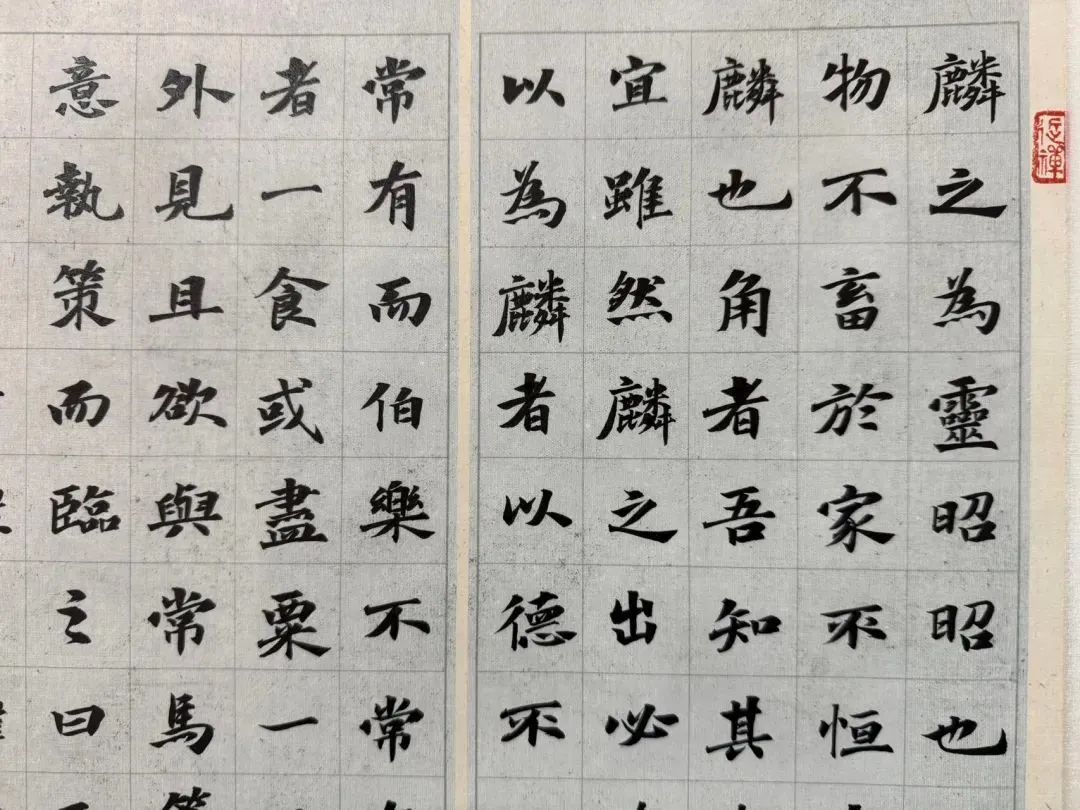 麟之為靈昭昭也
物不畜於家不恒
麟也角者吾知其
宜雖然麟之出必
以為麟者以德不
常有而伯樂不常
者一食或盡粟一
外見且欲與常馬
意執策而臨之曰